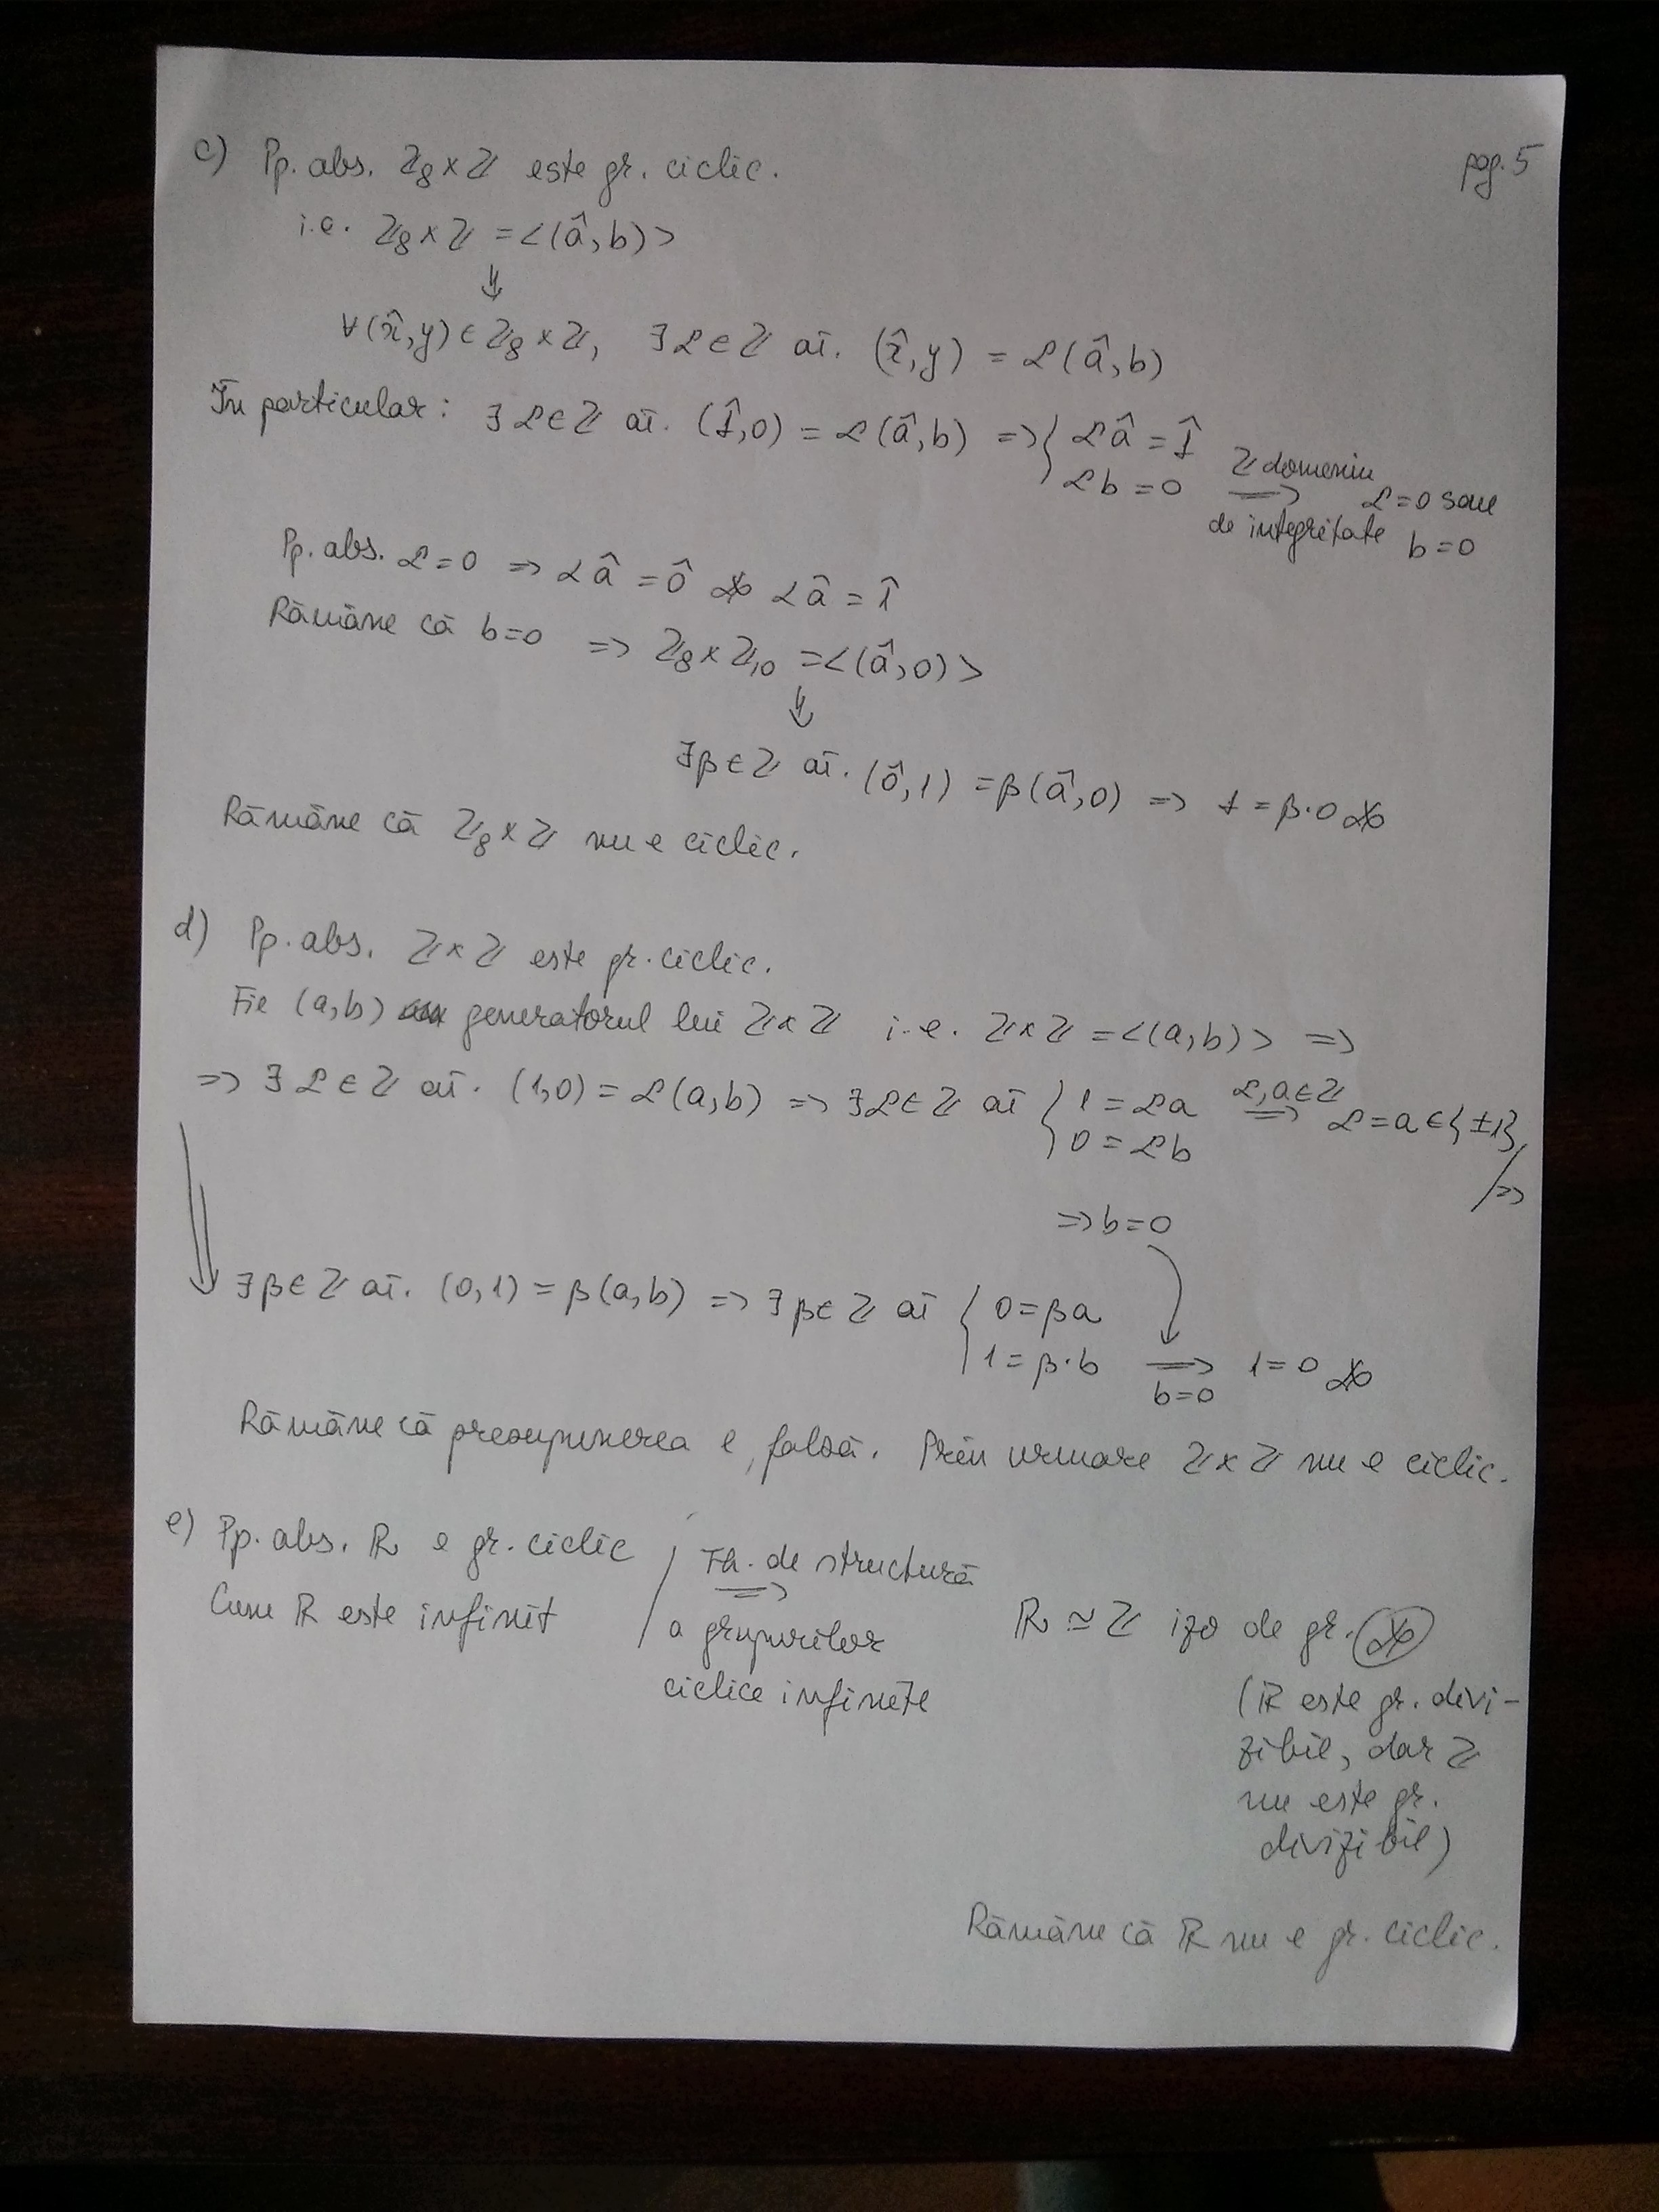 pag. 5
c) Pp. abs. ℤ₈ × ℤ este gr. ciclic.
i.e. ℤ₈ × ℤ = <(â, b)>
⇓
∀(x̂, y) ∈ ℤ₈ × ℤ, ∃ α ∈ ℤ aî. (x̂, y) = α(â, b)
În particular: ∃ α ∈ ℤ aî. (1̂, 0) = α(â, b) => { αâ = 1̂
αb = 0 ℤ domeniu => de integritate α = 0 sau b = 0
Pp. abs. α = 0 => αâ = 0̂ ※ αâ = 1̂
Rămâne că b = 0 => ℤ₈ × ℤ₁₀ = <(â, 0)>
⇓
∃ β ∈ ℤ aî. (0̂, 1) = β(â, 0) => 1 = β·0 ※
Rămâne că ℤ₈ × ℤ nu e ciclic.
d) Pp. abs. ℤ × ℤ este gr. ciclic.
Fie (a, b) generatorul lui ℤ × ℤ i.e. ℤ × ℤ = <(a, b)> =>
=> ∃ α ∈ ℤ aî. (1, 0) = α(a, b) => ∃ α ∈ ℤ aî { 1 = αa α, a ∈ ℤ => α = a ∈ {±1} / =>
0 = αb
=> b = 0
⇓ ∃ β ∈ ℤ aî. (0, 1) = β(a, b) => ∃ β ∈ ℤ aî { 0 = βa
1 = β·b => b = 0 1 = 0 ※
Rămâne că presupunerea e falsă. Prin urmare ℤ × ℤ nu e ciclic.
e) Pp. abs. ℝ e gr. ciclic / Th. de structură
Cum ℝ este infinit => a grupurilor ℝ ≃ ℤ izo de gr. ※
ciclice infinite
(ℝ este gr. divi-
zibil, dar ℤ
nu este gr.
divizibil)
Rămâne că ℝ nu e gr. ciclic.